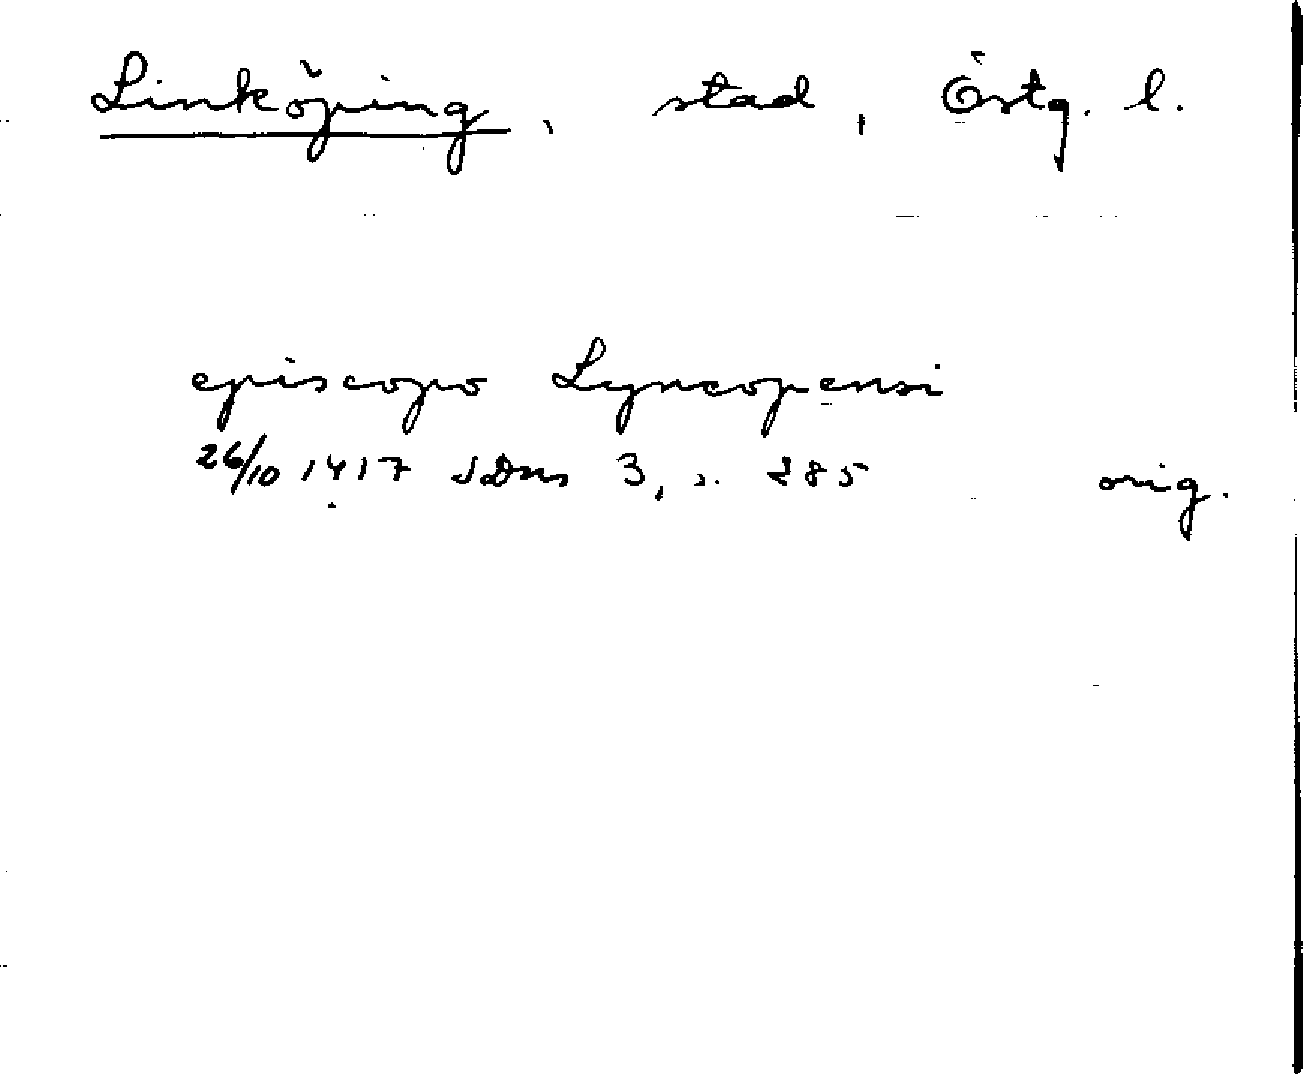 Linköping, stad, Östg. l.
episcopo Lyncopensi
26/10 1417 SDns 3, s. 285 orig.